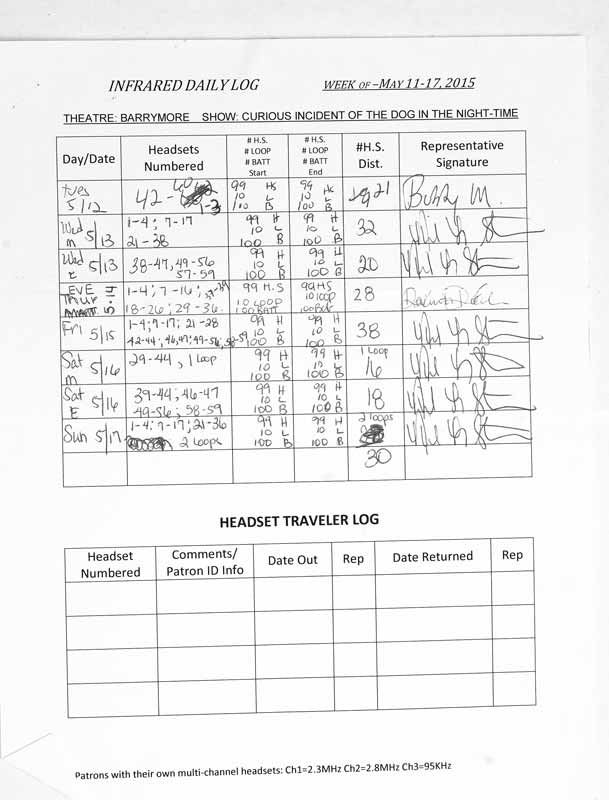 INFRARED DAILY LOG WEEK OF –MAY 11-17, 2015
THEATRE: BARRYMORE SHOW: CURIOUS INCIDENT OF THE DOG IN THE NIGHT-TIME
Day/Date
Headsets
Numbered
# H.S.
# LOOP
# BATT
Start
# H.S.
# LOOP
# BATT
End
#H.S.
Dist.
Representative
Signature
Tues
5/12
42-
99 HS
10 L
100 B
99 HS
10 L
100 B
21
Buffy M.
Wed
M 5/13
1-4; 7-17
21-38
99 H
10 L
100 B
99 H
10 L
100 B
32
Wed
E 5/13
38-47, 49-56
57-59
99 H
10 L
100 B
99 H
10 L
100 B
20
EVE
Thur
1-4; 7-16;
18-26; 29-36
99 H.S
10 LOOP
100 BATT
99 HS
10 LOOP
100 Batt
28
Fri 5/15
1-4; 7-17; 21-28
99 H
10 L
100 B
99 H
10 L
100 B
38
Sat
M 5/16
29-44, 1 loop
99 H
10 L
100 B
99 H
10 L
100 B
1 Loop
16
Sat
E 5/16
39-44; 46-47
49-56; 58-59
99 H
10 L
100 B
99 H
10 L
100 B
18
Sun 5/17
1-4; 7-17; 21-36
2 loops
99 H
10 L
100 B
99 H
10 L
100 B
2 loops
30
HEADSET TRAVELER LOG
Headset
Numbered
Comments/
Patron ID Info
Date Out
Rep
Date Returned
Rep
Patrons with their own multi-channel headsets: Ch1=2.3MHz Ch2=2.8MHz Ch3=95KHz